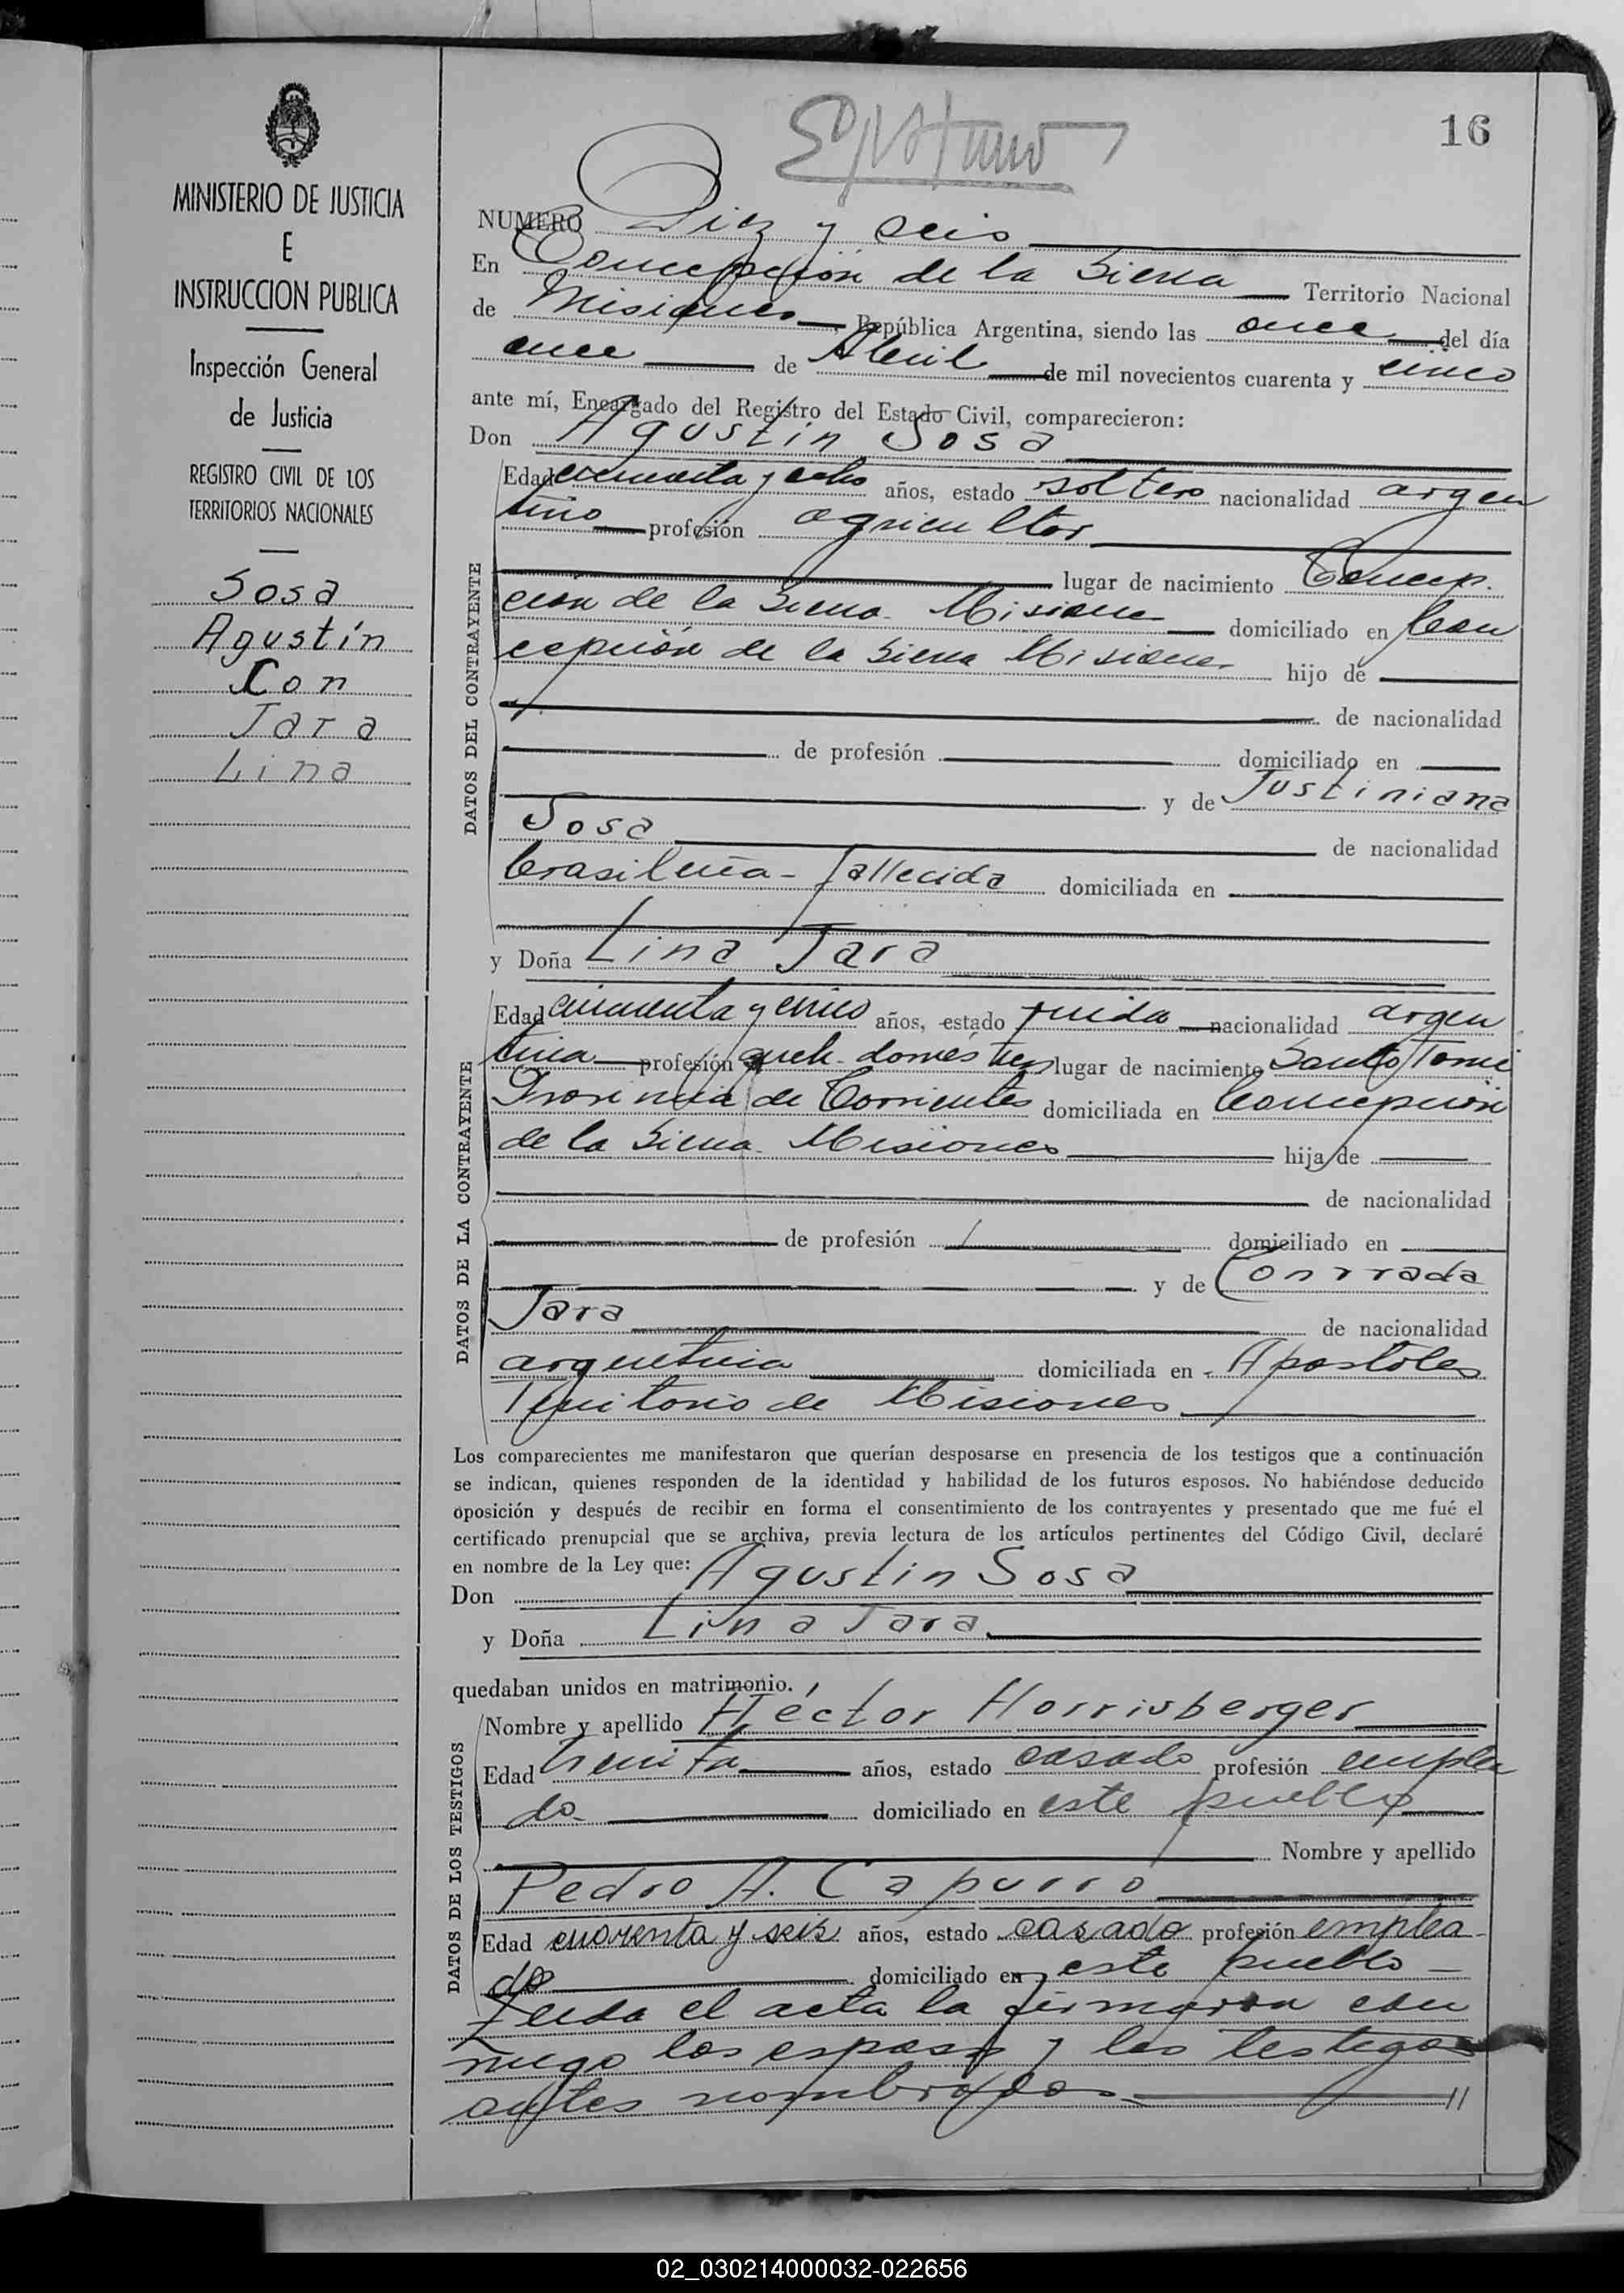 16
MINISTERIO DE JUSTICIA
E
INSTRUCCION PUBLICA
Inspección General
de Justicia
REGISTRO CIVIL DE LOS
TERRITORIOS NACIONALES
Sosa
Agustín
Con
Jara
Lina
NUMERO Diez y seis
En Concepción de la Sierra Territorio Nacional
de Misiones, República Argentina, siendo las once del día
once de Abril de mil novecientos cuarenta y cinco
ante mí, Encargado del Registro del Estado Civil, comparecieron:
Don Agustín Sosa
DATOS DEL CONTRAYENTE
Edad y ocho años, estado soltero nacionalidad argen
tino profesión agricultor
lugar de nacimiento Concep.
ción de la Sierra Misiones domiciliado en Con
cepción de la Sierra Misiones hijo de
de nacionalidad
de profesión domiciliado en
y de Justiniana
Sosa de nacionalidad
brasileña - fallecida domiciliada en
y Doña Lina Jara
DATOS DE LA CONTRAYENTE
Edad cincuenta y cinco años, estado viuda nacionalidad argen
tina profesión queh. domésticos lugar de nacimiento Santo Tomé
Provincia de Corrientes domiciliada en Concepción
de la Sierra Misiones hija de
de nacionalidad
de profesión domiciliado en
y de Conrrada
Jara de nacionalidad
argentina domiciliada en Apostoles
Territorio de Misiones
Los comparecientes me manifestaron que querían desposarse en presencia de los testigos que a continuación
se indican, quienes responden de la identidad y habilidad de los futuros esposos. No habiéndose deducido
oposición y después de recibir en forma el consentimiento de los contrayentes y presentado que me fué el
certificado prenupcial que se archiva, previa lectura de los artículos pertinentes del Código Civil, declaré
en nombre de la Ley que:
Don Agustin Sosa
y Doña Lina Jara
quedaban unidos en matrimonio.
DATOS DE LOS TESTIGOS
Nombre y apellido Héctor Horrisberger
Edad treinta años, estado casado profesión emplea
do domiciliado en este pueblo
Nombre y apellido
Pedro A. Capurro
Edad cuarenta y seis años, estado casado profesión emplea-
do domiciliado en este pueblo
Leida el acta la firmaron con
migo los esposos y los testigos
antes nombrados
02_030214000032-022656